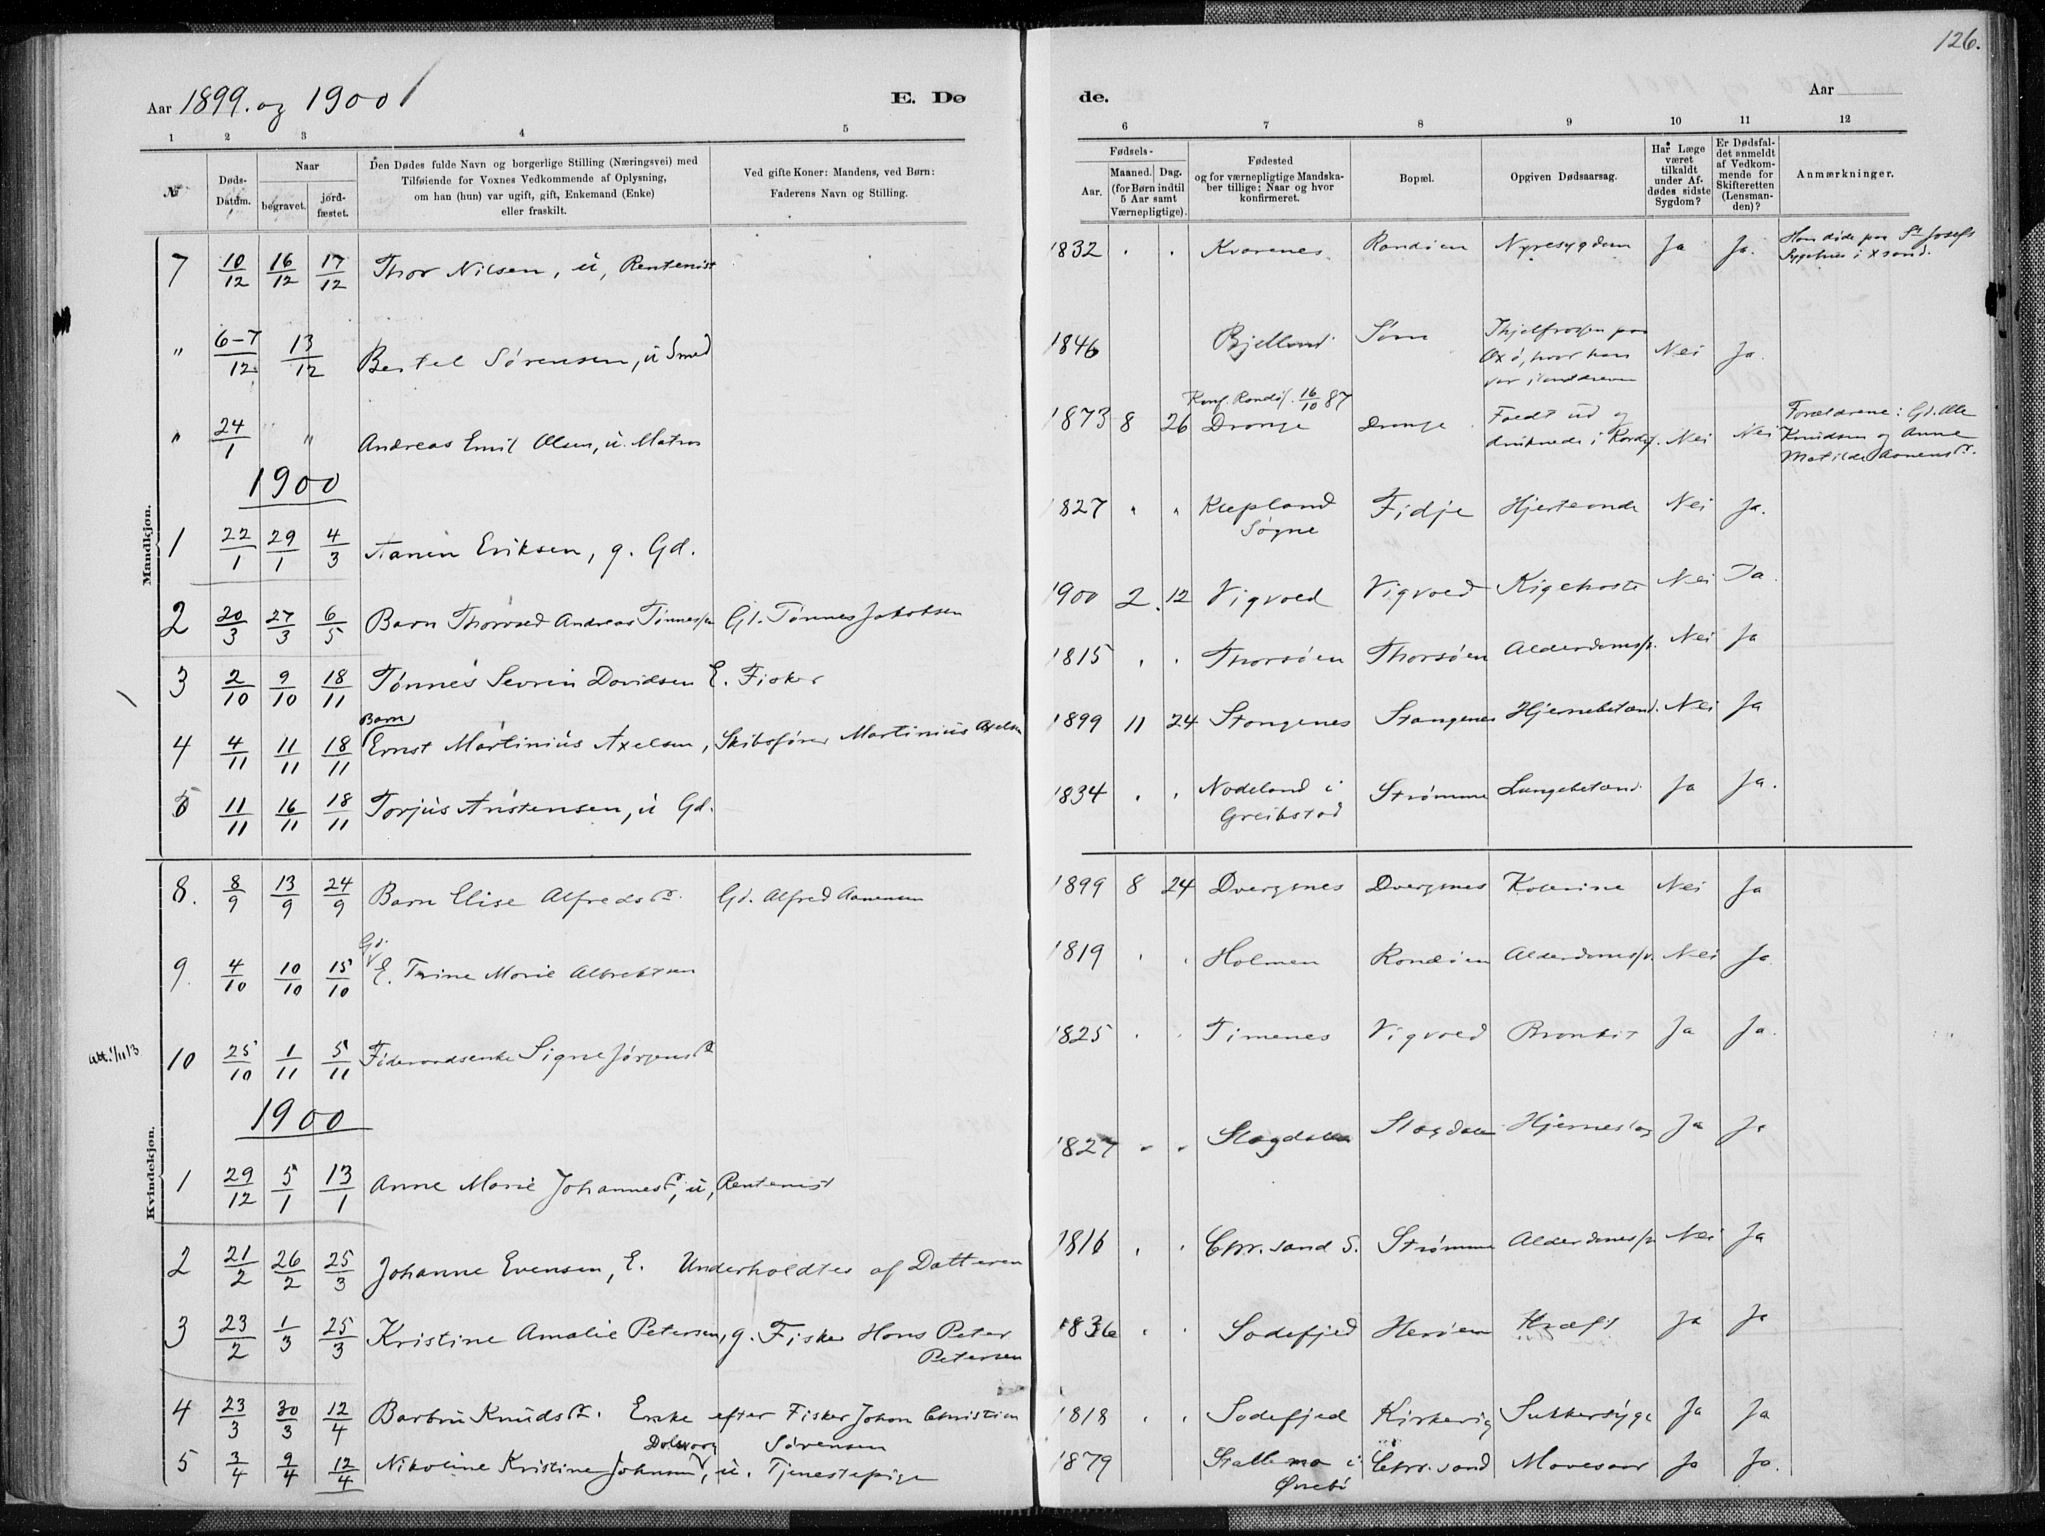 126.
Aar 1899. og 1900
E. Dø
de.
Aar
1 2 3 4 5
6 7 8 9 10 11 12
№
Døds-Datum.
Naar
begravet.
jord-fæstet.
Den Dødes fulde Navn og borgerlige Stilling (Næringsvei) med
Tilføiende for Voxnes Vedkommende af Oplysning,
om han (hun) var ugift, gift, Enkemand (Enke)
eller fraskilt.
Ved gifte Koner: Mandens, ved Børn:
Faderens Navn og Stilling.
Fødsels-
Aar.
Maaned. Dag.
(for Børn indtil
5 Aar samt
Værnepligtige).
Fødested
og for værnepligtige Mandska-
ber tillige: Naar og hvor
konfirmeret.
Bopæl.
Opgiven Dødsaarsag.
Har Læge
været
tilkaldt
under Af-
dødes sidste
Sygdom?
Er Dødsfal-
det anmeldt
af Vedkom-
mende for
Skifteretten
(Lensman-
den)?
Anmærkninger.
Mandkjøn.
7 10/12 16/12 17/12 Thor Nilsen, u, Rentenist 1832 Kvarenes Randøen Nyresygdom Ja Ja. Han døde paa St Josefs
Sygehus i Xsand.
" 6-7/12 13/12 Bertel Sørensen, u Smed 1846 Bjelland Søm Ihjelfrossen paa
Oxø, hvor han
var inddreven Nei Ja.
" 24/1 " Andreas Emil Olsen, u. Matros 1873 8 26 Konf. Randø/. 16/10 87
Drange Drange Faldt ud og
druknede i Nei Nei Forældrene: Gd. Ole
Knudsen og Anne
Matilde Aanensd.
1900
1 22/1 29/1 4/3 Eriksen, g. Gd. 1827 " " Repland
Søgne Fidje Hjerteonde Nei Ja.
2 20/3 27/3 6/5 Barn Thorvald Andreas Tønnessen Gd. Tønnes Jakobsen 1900 2 12 Vigvold Vigvold Kigehoste Nei Ja
3 2/10 9/10 18/11 Tønnes Sevrin Davidsen E. Fisker 1815 Thorsøen Thorsøen Alderdomssv. Nei Ja
4 4/11 11/11 18/11 Barn
Ernst Martinius Axelsen, Skibsfører Martinius Axelsen 1899 11 24 Stangenes Stangenes Hjernebetænd. Nei Ja
5 11/11 16/11 18/11 Torjus Aristensen, u Gd. 1834 Nodeland i
Greibstad Strømme Lungebetænd. Ja Ja.
Kvindekjøn.
8. 8/9 13/9 24/9 Barn Elise Alfredsd. Gd. Alfred Aanensen 1899 8 24 Dvergsnes Dvergsnes Kolerine Nei Ja
9. 4/10 10/10 15/10 Gd.
E. Trine Marie Albrektsen 1819 Holmen Randøen Alderdomssv. Nei Ja
10 25/10 1/11 5/11 Føderaadsenke Signe Jørgensd. 1825 Timenes Vigvold Bronkit Ja Ja.
1900
1 29/12 5/1 13/1 Anne Marie Johannesd., u, Rentenist 1827 Slagdalen Slagdalen Hjerneslag Ja Ja
2 21/2 26/2 25/3 Johanne Evensen, E. Underholdtes af Datteren 1816 Chr.sand S. Strømme Alderdomssv. Nei Ja
3 23/2 1/3 25/3 Kristine Amalie Petersen, g. Fisker Hans Peter
Petersen 1836 Sodefjed Herøen Kræft Ja Ja
4 23/3 30/3 12/4 Barbru Knudsd. Enke efter Fisker Johan Christian
Sørensen 1818 Sodefjed Kirkevig Sukkersyge Ja Ja
5 3/4 9/4 12/4 Nikoline Kristine Johnsen, u. Tjenestepige 1879 Stallemo i
Øvrebø Chr.sand Mavesaar Ja Ja.